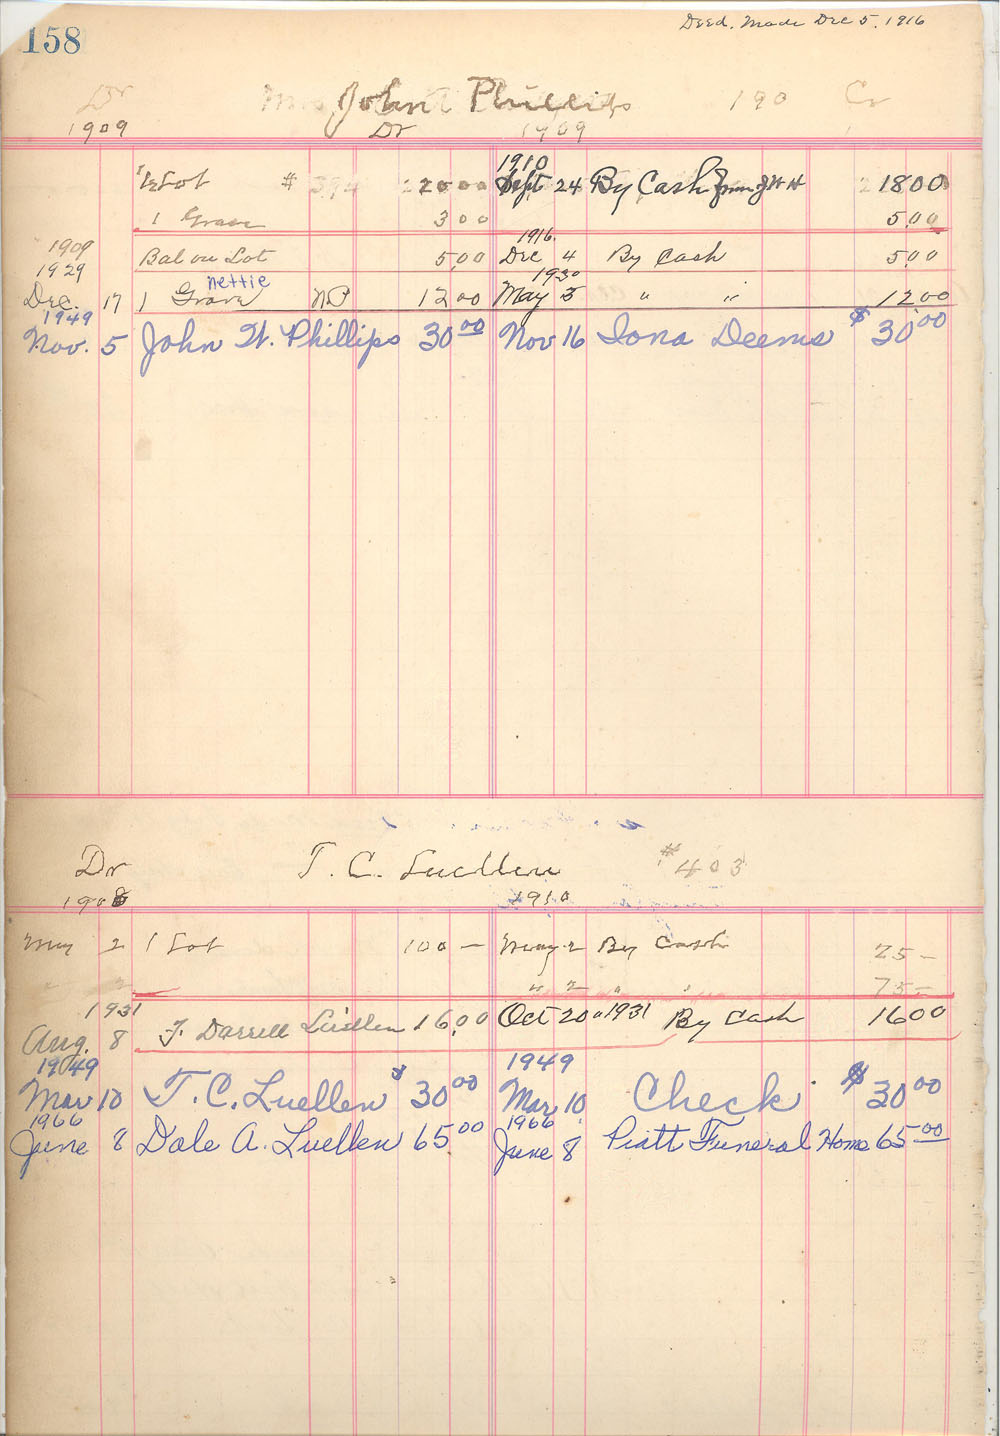 158
Deed. Made Dec 5. 1916
Dr John Phillips 190 Cr
1909 Dr 1909
1910
1/2 Lot # 394 20 00 Sept 24 By Cash from J W H 18 00
1 Grave 3 00 5 00
1909 1916
Bal on Lot 5 00 Dec 4 By Cash 5 00
1929 Nettie 1930
Dec. 17 1 Grave NP 12 00 May 3 " " 12 00
1949
Nov. 5 John W. Phillips 30 00 Nov 16 Iona Deems $ 30 00
Dr T. C. Luellen # 403
1908 1910
May 2 1 Lot 100 — May 2 By Cash 25 —
" 2 " " 75 —
1931
Aug. 8 J. Darrell Luellen 16 00 Oct 20 1931 By Cash 16 00
1949 1949
Mar 10 T. C. Luellen $ 30 00 Mar 10 Check $ 30 00
1966 1966
June 8 Dale A. Luellen 65 00 June 8 Piatt Funeral Home 65 00